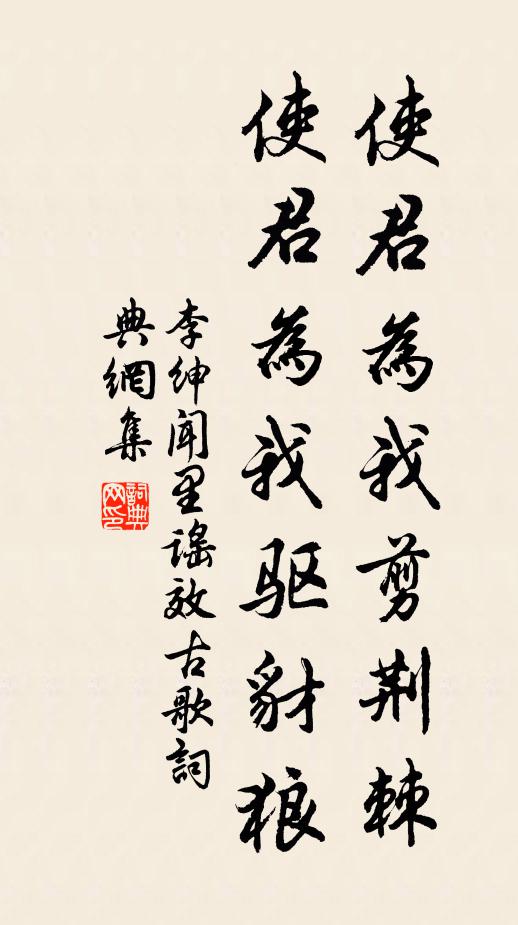 使君為我剪荆棘
使君為我驱豺狼
李紳闻里謠效古歌詞
典網集
詞典
网印